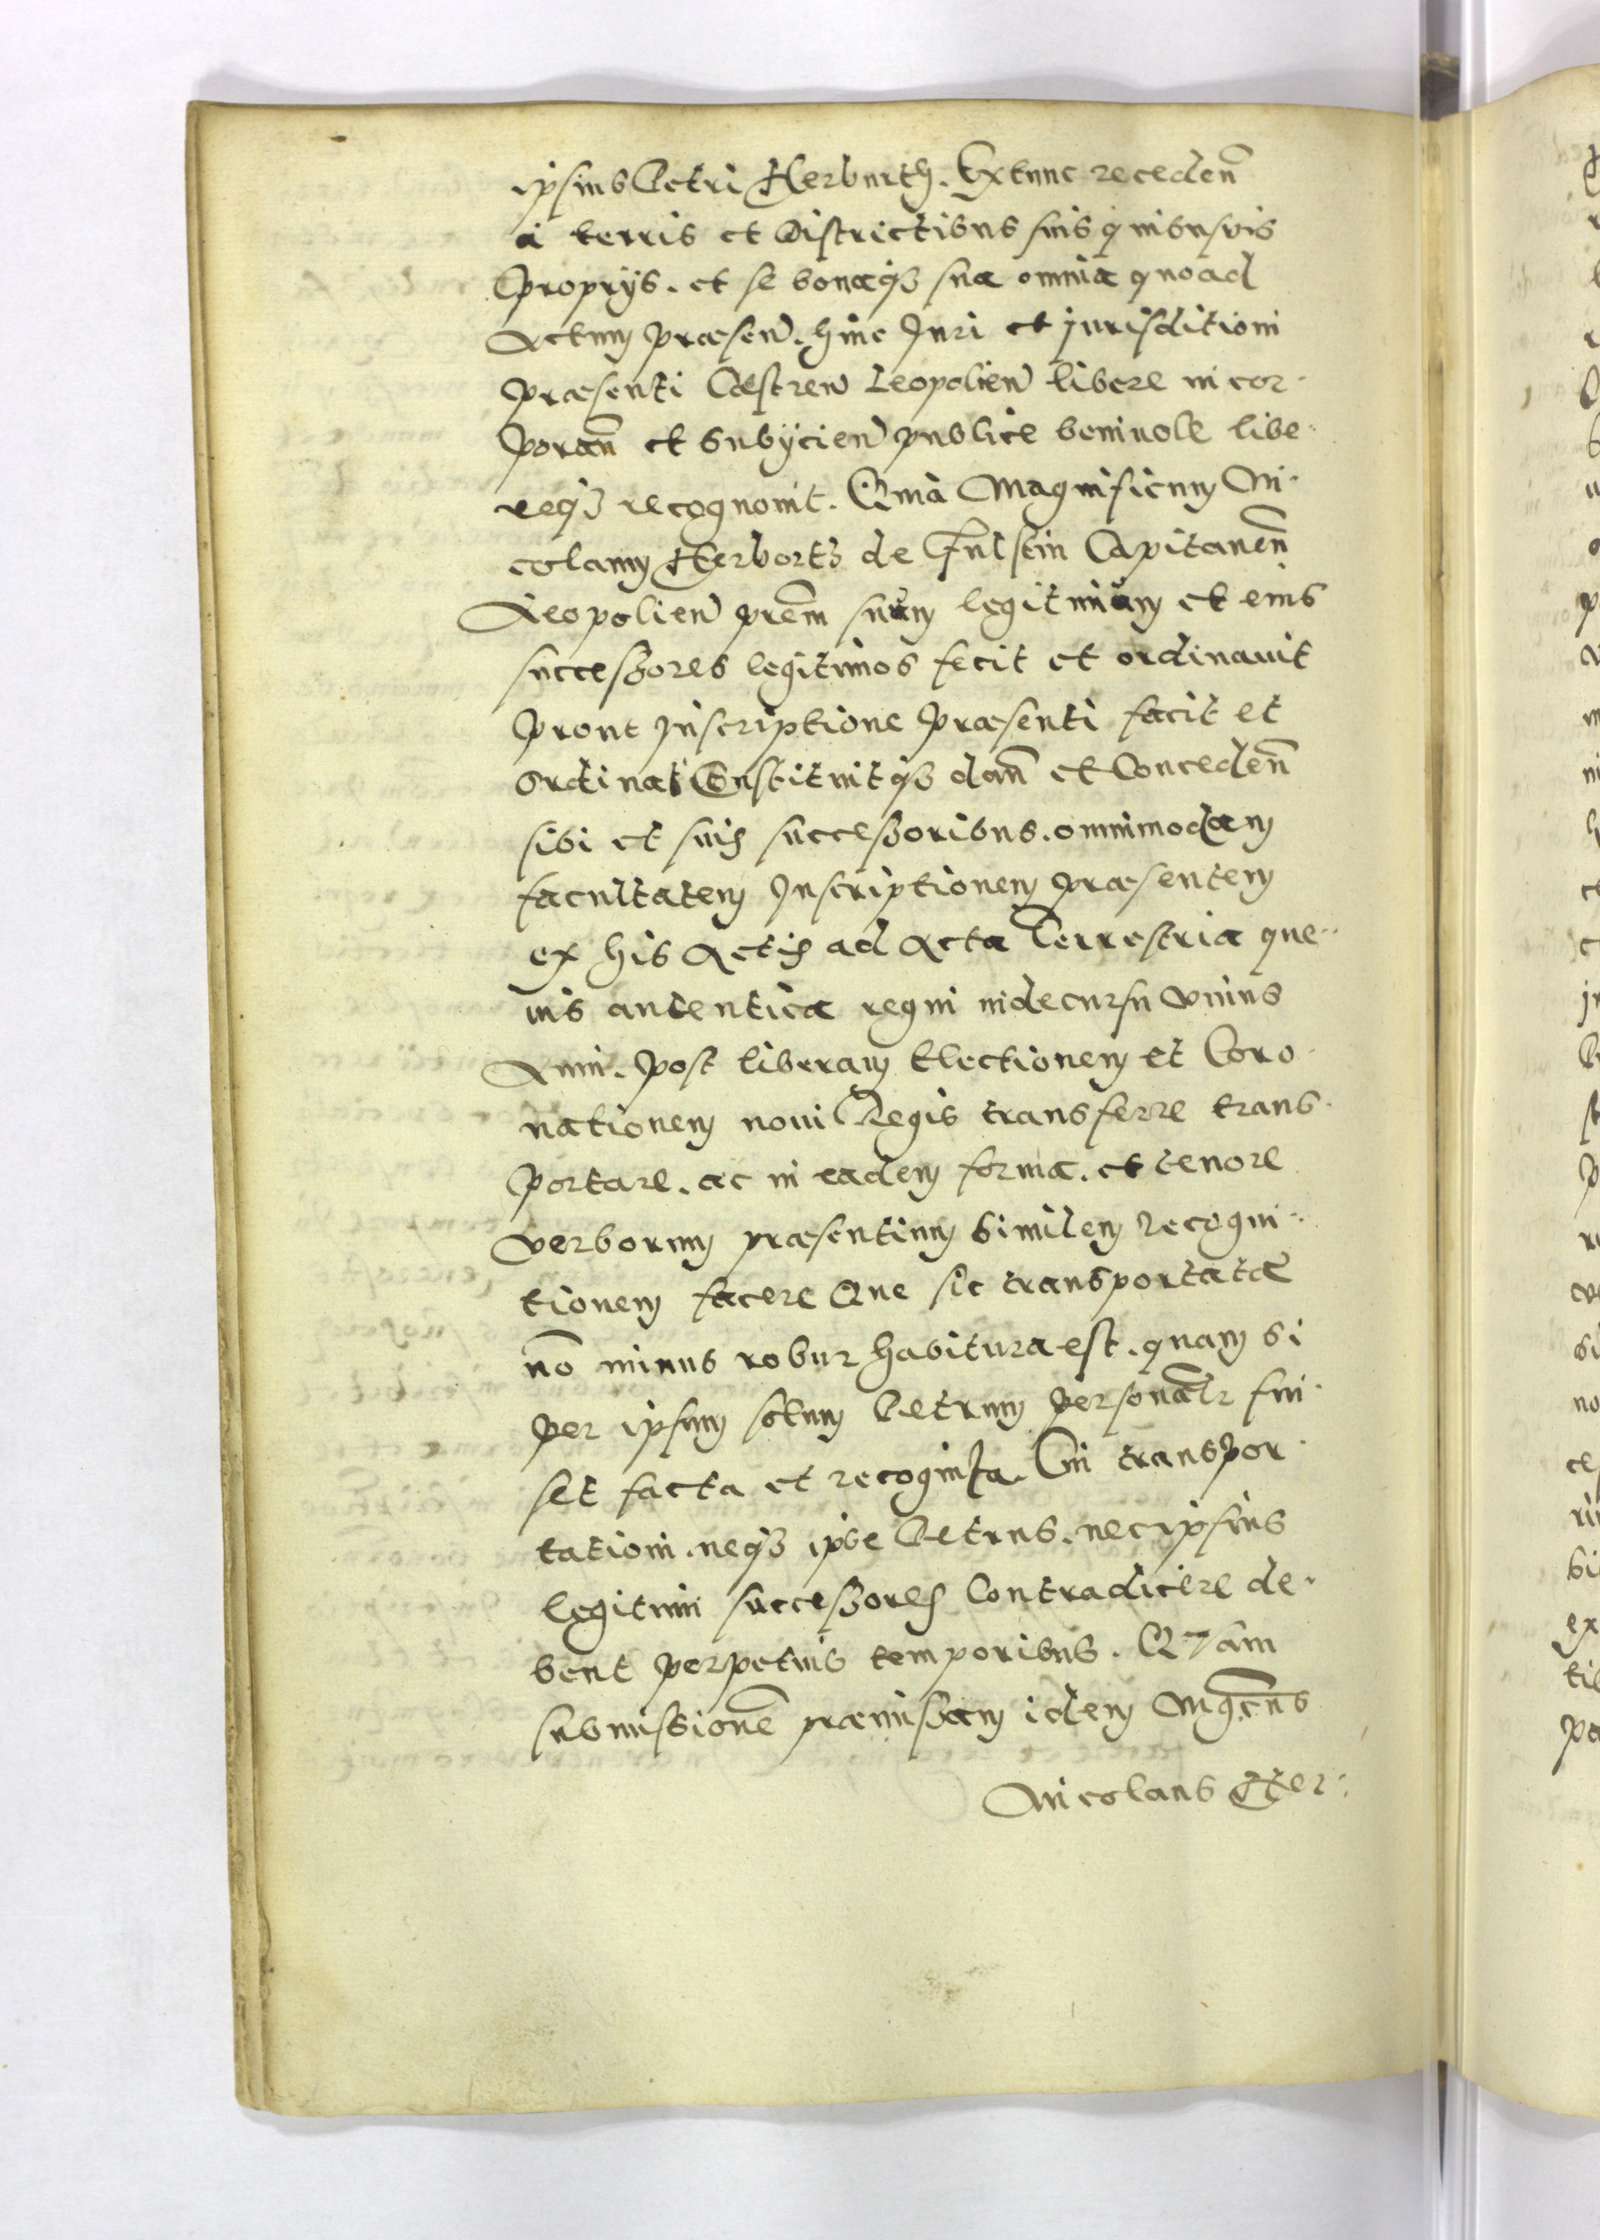 ipsius Petri Herburth. Extunc recedenn̄
a terris et Districtibus suis quibusvis
proprijs. et se bonaqꝫ sua omnia quoad
Actum praesen̄. huic Juri et jurisditioni
praesenti Castren̄ Leopolien̄ libere incor-
poran̄ et subijcien̄ publice benivole libe-
reqꝫ recognovit. Quia Magnificum Ni-
colaum Herborth de Fulstin Capitaneū
Leopolien̄ pr̄em suum legitimum et eius
successores legitimos fecit et ordinavit
prout Inscriptione praesenti facit et
ordinat Constituitqꝫ dan̄ et Conceden̄
sibi et suis successoribus. omnimodam
facultatem Inscriptionem praesentem
ex his Actis ad Acta Terrestria que-
vis autentica regni in decursu vnius
Anni. post liberam Electionem et Coro-
nationem novi Regis transferre trans-
portare. ac in eadem forma. et tenore
verborum praesentium similem recogni-
tionem facere Que sic transportata
nō minus robur habitura est. quam si
per ipsum solum Petrum personalr fui-
set facta et recognita. Cui transpor-
tationi. neqꝫ ipse Petrus. nec ipsius
legitimi successores Contradicere de-
bent perpetuis temporibus. Quam
submissionē praemissam idem Mgcus
Nicolaus Her-